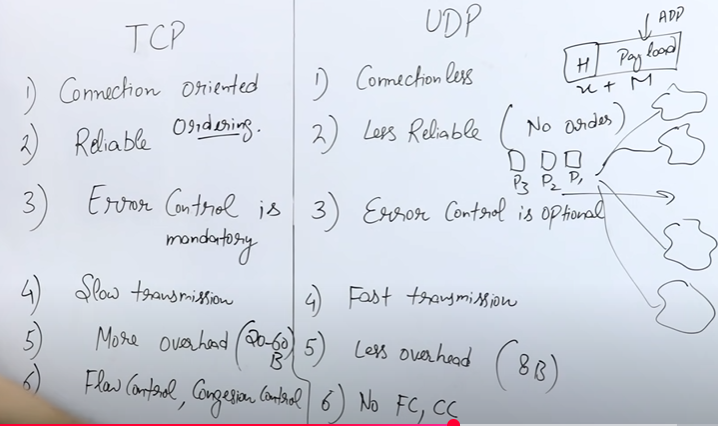 TCP
1) Connection oriented
2) Reliable Ordering.
3) Error Control is
mandatory
4) Slow transmission
5) More overhead (20-60)
B
6) Flow Control, Congesion Control
UDP
1) Connectionless
2) Less Reliable (No order)
P3 P2 P1
3) Error Control is optional
4) Fast transmission
5) Less overhead (8B)
6) No FC, CC
H Payload
+ M